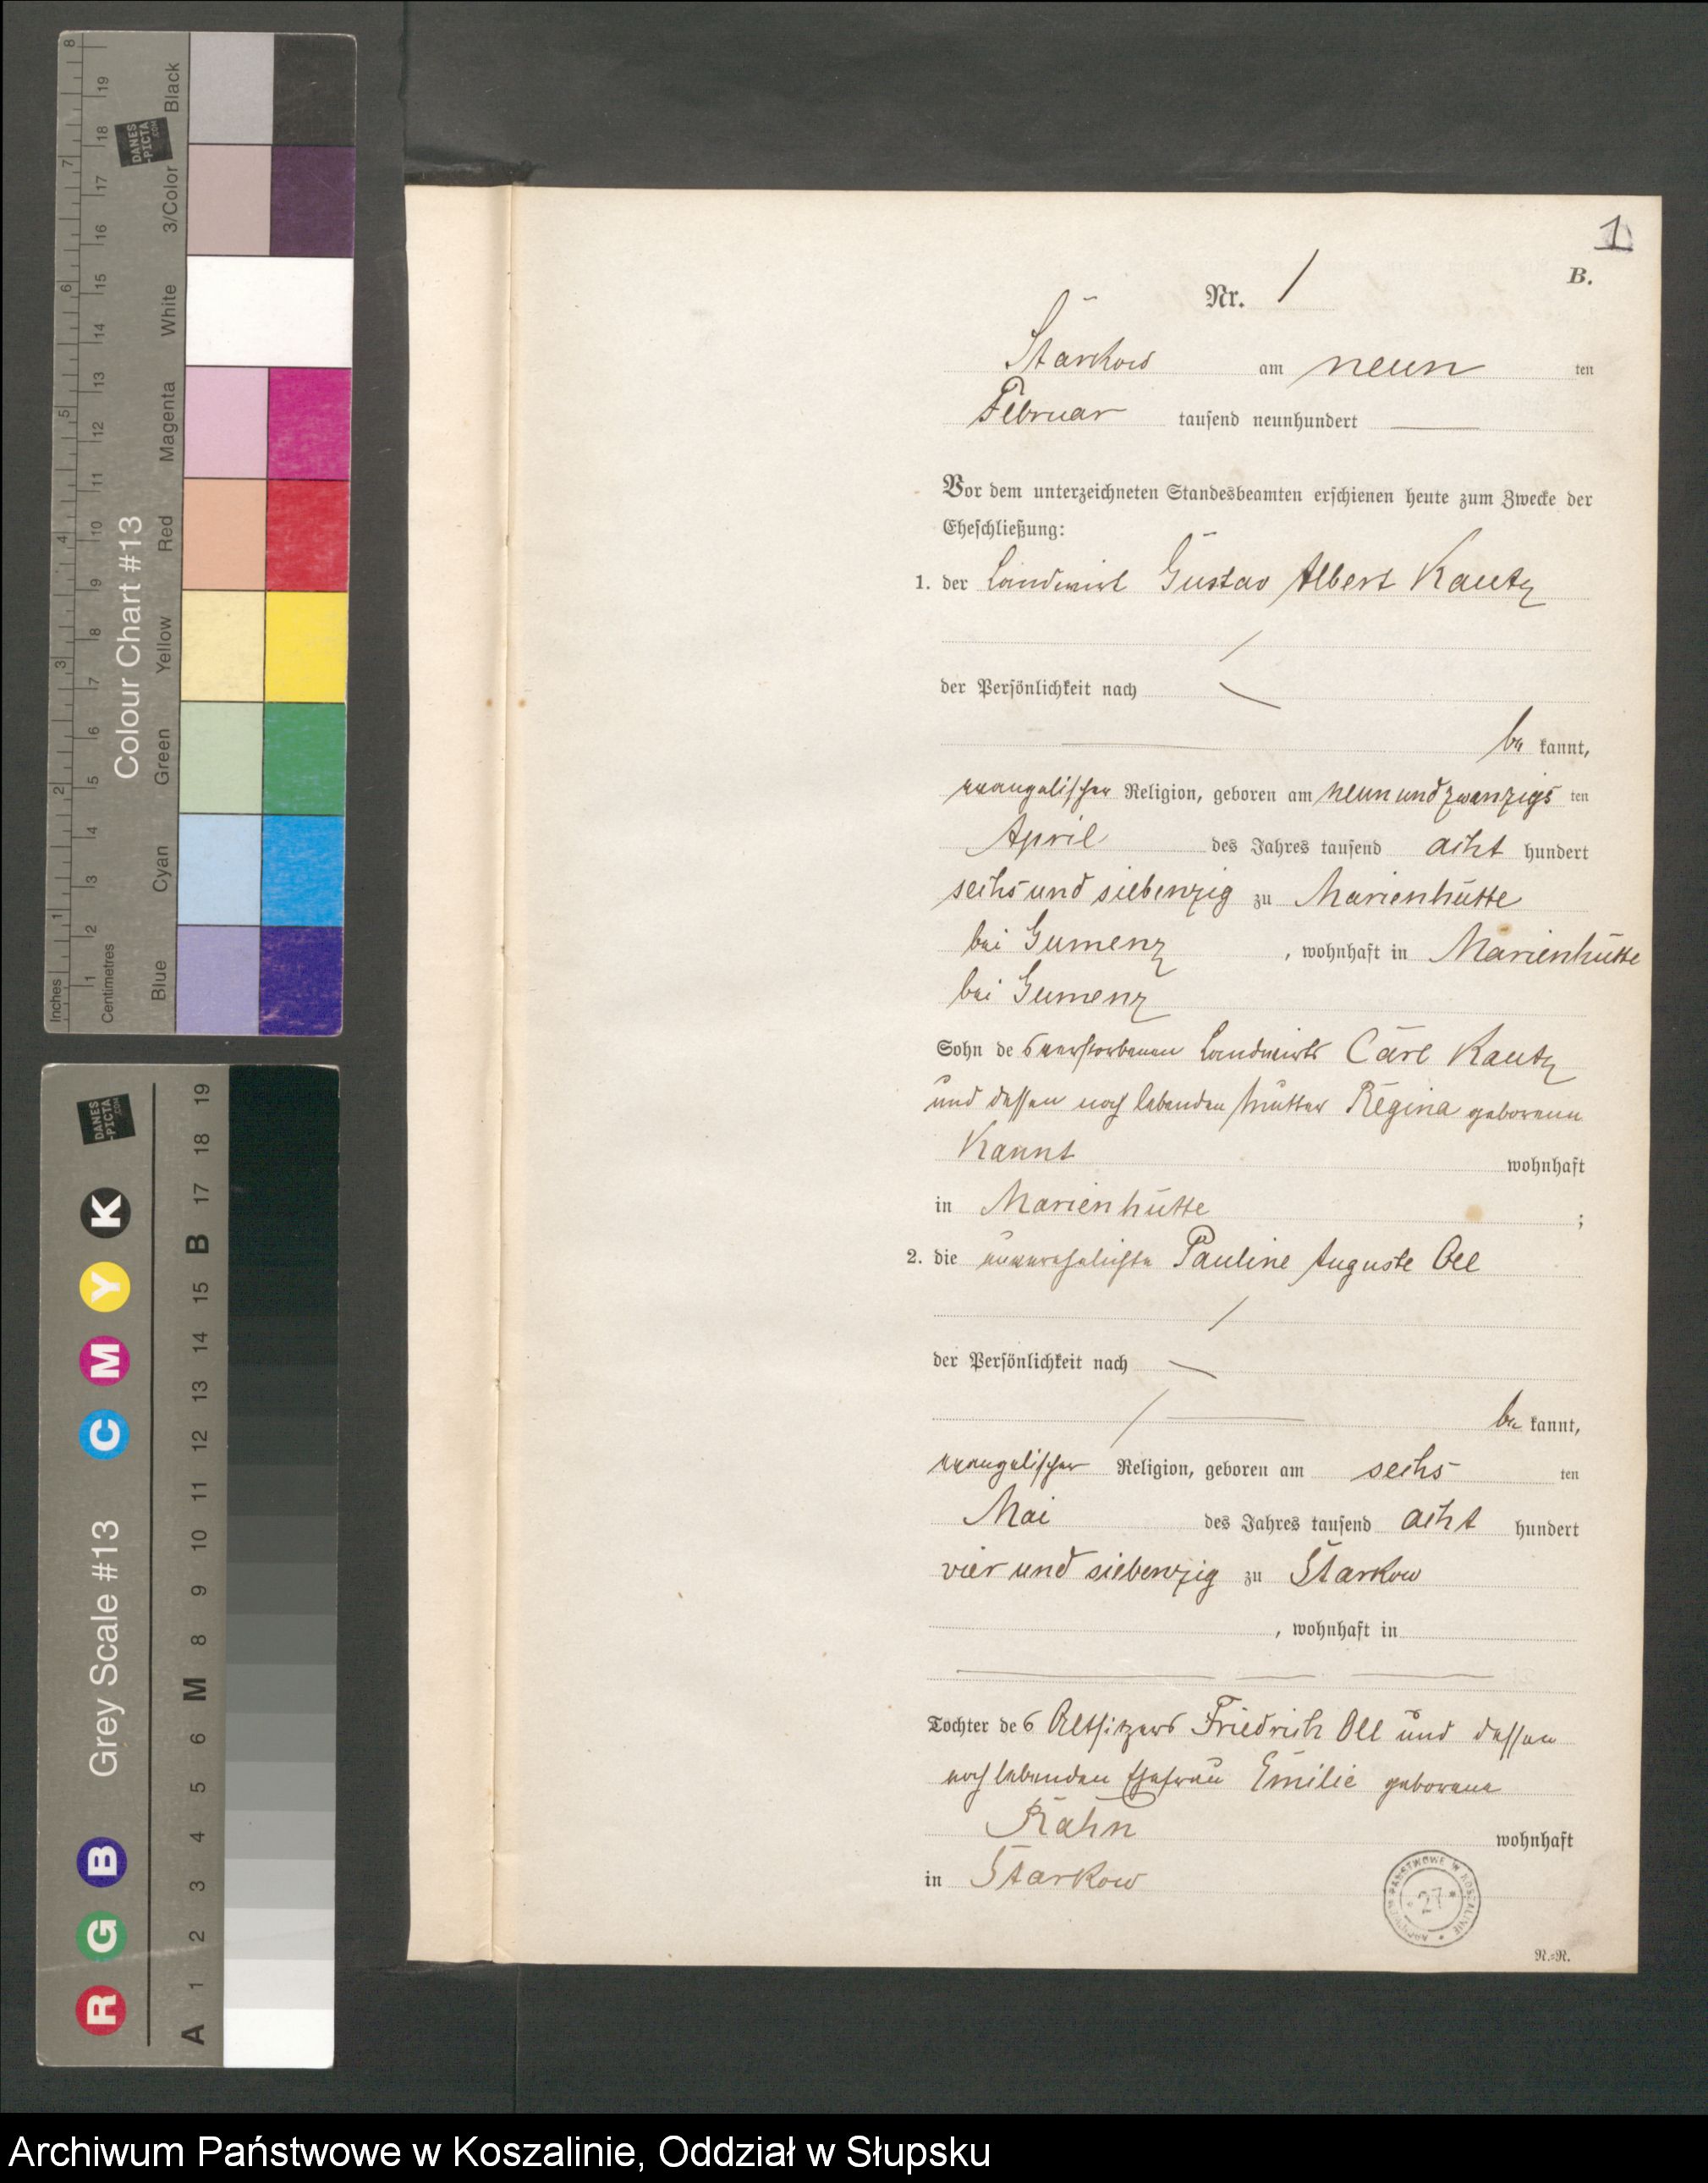 1
B.
Nr. 1
Starkow am neun ten
Februar tausend neunhundert
Vor dem unterzeichneten Standesbeamten erschienen heute zum Zwecke der
Eheschließung:
1. der Landwirt Gustav Albert Kautz
der Persönlichkeit nach
be kannt,
evangelischer Religion, geboren am neun und zwanzigs ten
April des Jahres tausend acht hundert
sechs und siebenzig zu Marienhütte
bei Gumenz, wohnhaft in Marienhütte
bei Gumenz
Sohn des verstorbenen Landwirts Carl Kautz
und dessen noch lebenden Mutter Regina geborenen
Kannt wohnhaft
in Marienhütte ;
2. die unverehelichte Pauline Auguste Oll
der Persönlichkeit nach
be kannt,
evangelischer Religion, geboren am sechs ten
Mai des Jahres tausend acht hundert
vier und siebenzig zu Starkow
, wohnhaft in
Tochter des Altsitzers Friedrich Oll und dessen
noch lebenden Ehefrau Emilie geborene
Rahn wohnhaft
in Starkow
ARCHIWUM PAŃSTWOWE W KOSZALINIE
27
N.=N.
Colour Chart #13
Black
3/Color
White
Magenta
Red
Yellow
Green
Cyan
Blue
Inches
1 2 3 4 5 6 7 8
Centimetres
1 2 3 4 5 6 7 8 9 10 11 12 13 14 15 16 17 18 19
DANES
-PICTA
.COM
Grey Scale #13
R G B C M Y K
A 1 2 3 4 5 6 M 8 9 10 11 12 13 14 15 B 17 18 19
DANES
-PICTA
.COM
Archiwum Państwowe w Koszalinie, Oddział w Słupsku